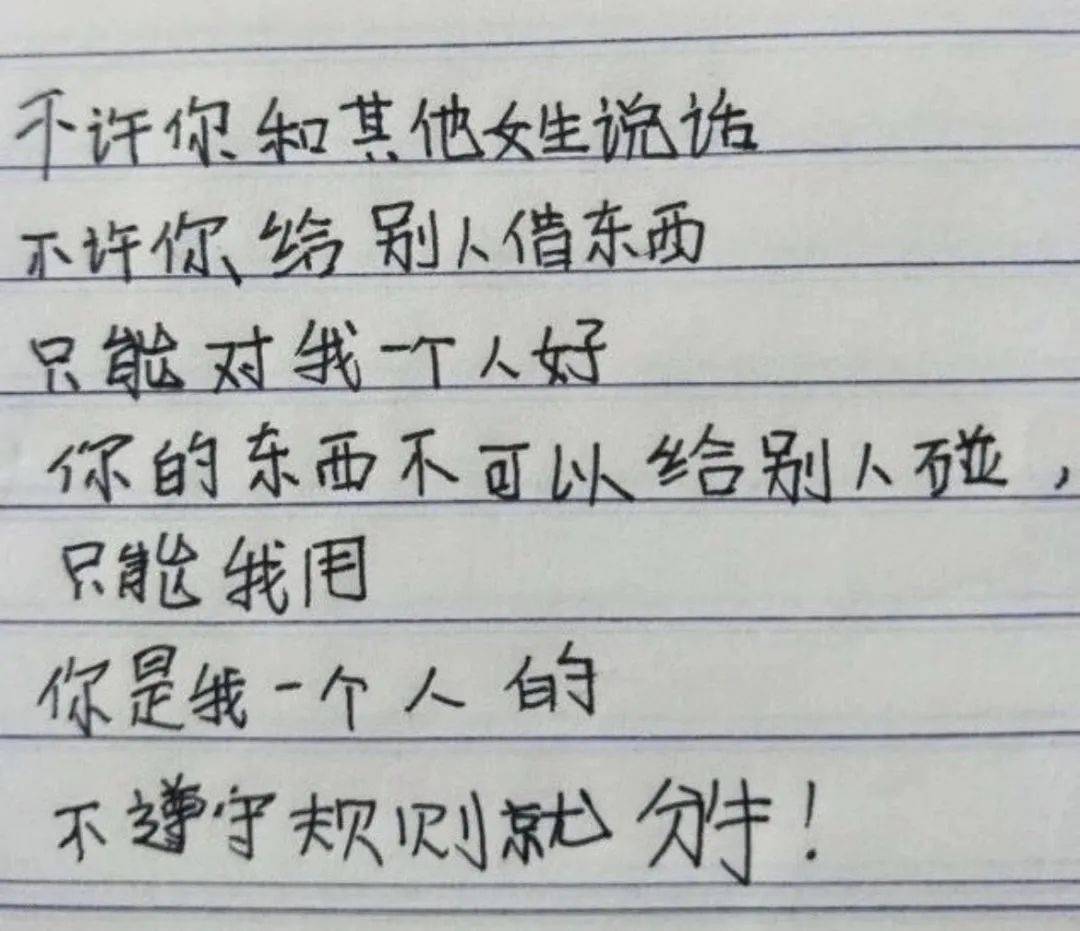 不许你和其他女生说话
不许你给别人借东西
只能对我一个人好
你的东西不可以给别人碰，
只能我用
你是我一个人的
不遵守规则就分手！